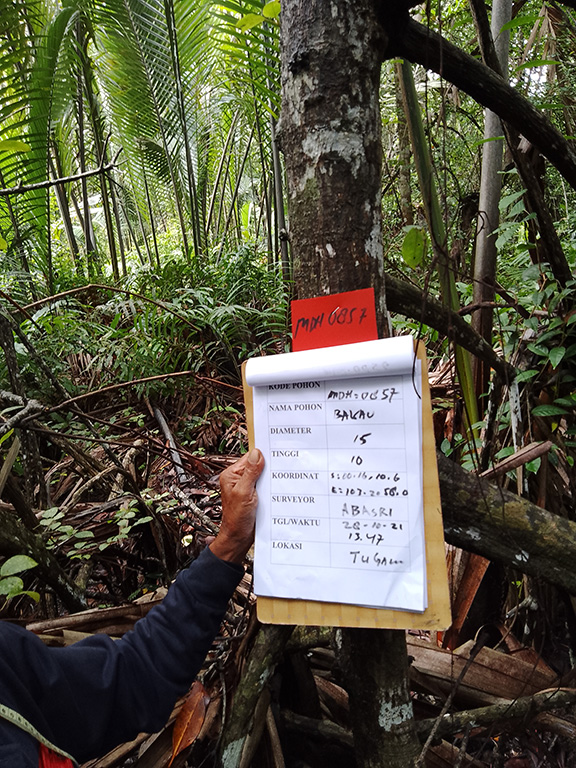 MDH 0857
KODE POHON MDH-0857
NAMA POHON BAKAU
DIAMETER 15
TINGGI 10
KOORDINAT
SURVEYOR ABASRI
TGL/WAKTU 28-10-21
13.47
LOKASI